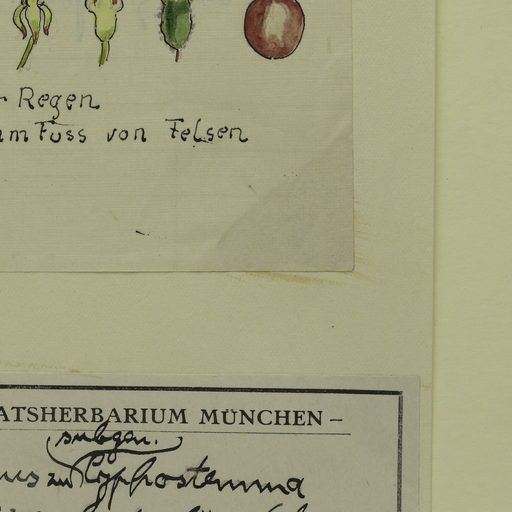 Regen
am Fuss von Felsen
ATSHERBARIUM MÜNCHEN –
subgen.
us zu Cyphostemma